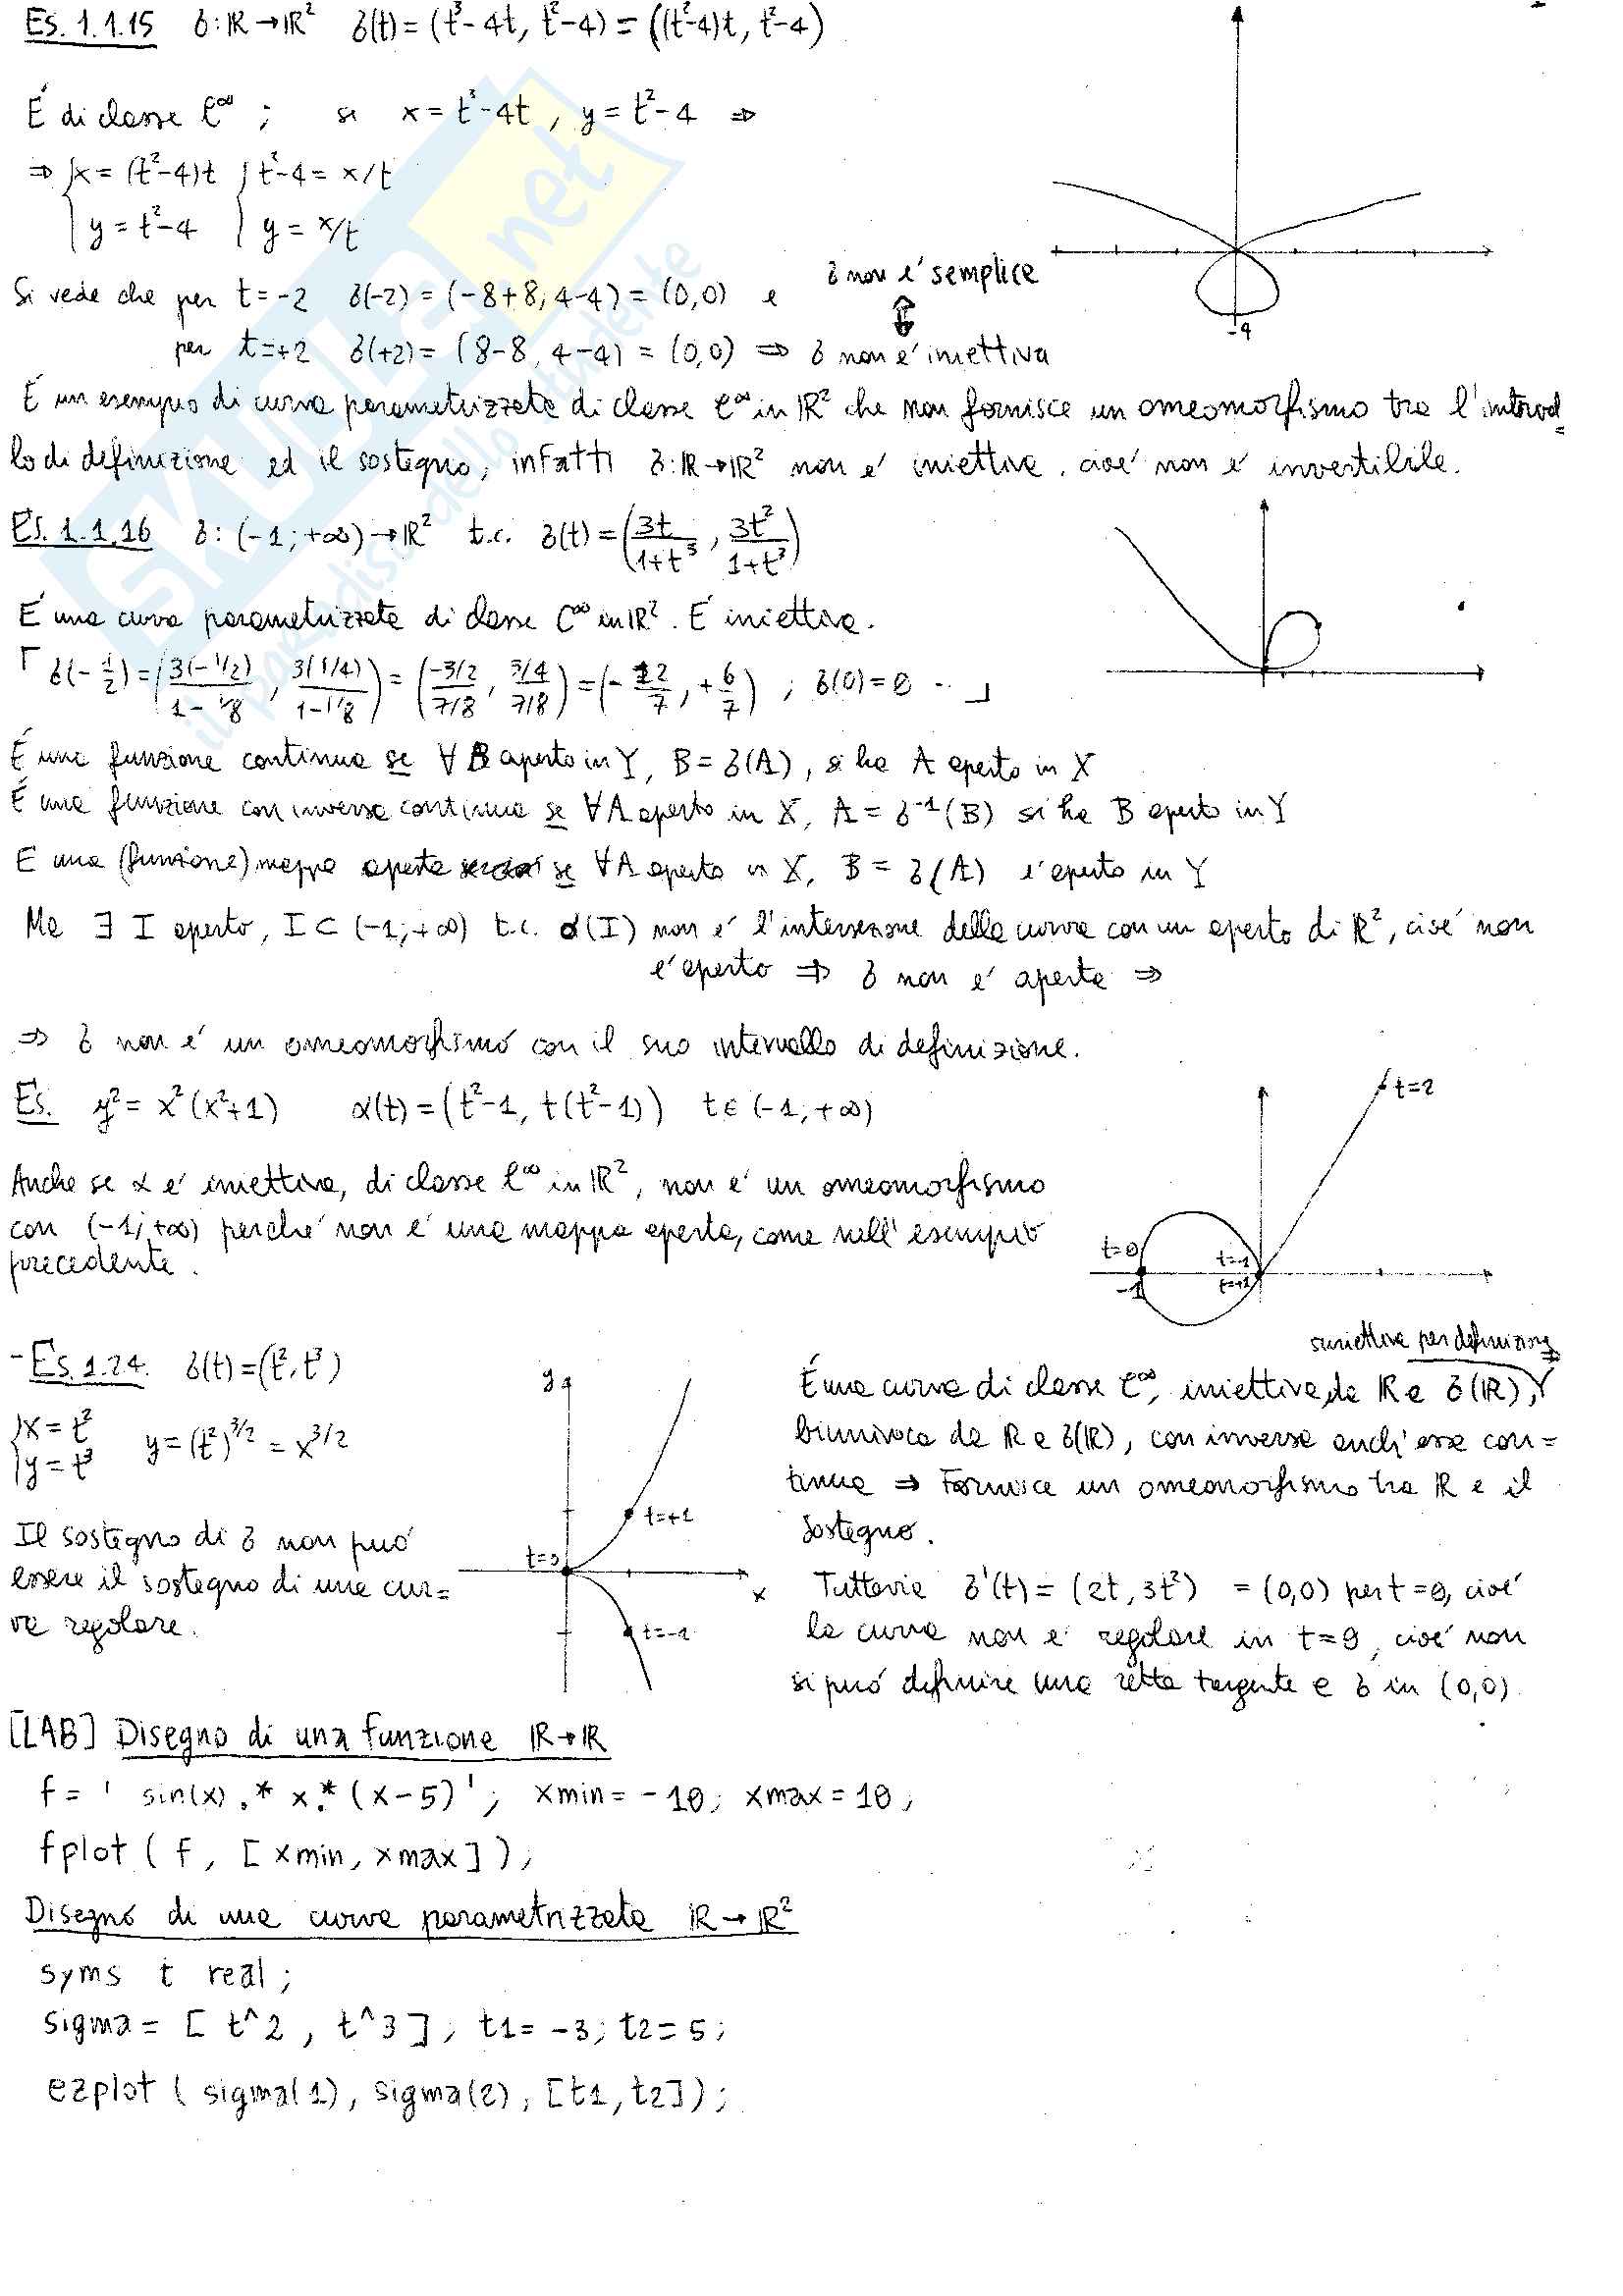 Es. 1.1.15 σ: ℝ → ℝ² σ(t) = (t³-4t, t²-4) = ((t²-4)t, t²-4)
É di classe C^∞ ; se x = t³-4t , y = t²-4 ⇒
⇒ { x = (t²-4)t { t²-4 = x/t
{ y = t²-4 { y = x/t
-4
σ non e' semplice
⇕
Si vede che per t = -2 σ(-2) = (-8+8, 4-4) = (0,0) e
per t = +2 σ(+2) = (8-8, 4-4) = (0,0) ⇒ σ non e' iniettiva
É un esempio di curva parametrizzata di classe C^∞ in ℝ² che non fornisce un omeomorfismo tra l'interval=
lo di definizione ed il sostegno, infatti σ: ℝ→ℝ² non e' iniettiva, cioe' non e' invertibile.
Es. 1.1.16 σ: (-1; +∞) → ℝ² t.c. σ(t) = (3t/(1+t³), 3t²/(1+t³))
E' una curva parametrizzata di classe C^∞ in ℝ². E' iniettiva.
⌈ σ(-1/2) = (3(-1/2)/(1-1/8), 3(1/4)/(1-1/8)) = ((-3/2)/(7/8), (3/4)/(7/8)) = (-12/7, +6/7) ; σ(0) = 0 .. ⌋
É una funzione continua se ∀ B aperto in Y, B = σ(A), si ha A aperto in X
É una funzione con inversa continua se ∀ A aperto in X, A = σ⁻¹(B) si ha B aperto in Y
E' una (funzione) mappa aperta se ∀ A aperto in X, B = σ(A) e' aperto in Y
Ma ∃ I aperto, I ⊂ (-1; +∞) t.c. α(I) non e' l'intersezione della curva con un aperto di ℝ², cioe' non
e' aperto ⇒ σ non e' aperta ⇒
⇒ σ non e' un omeomorfismo con il suo intervallo di definizione.
Es. y² = x²(x²+1) α(t) = (t²-1, t(t²-1)) t ∈ (-1; +∞)
t=2
Anche se α e' iniettiva, di classe C^∞ in ℝ², non e' un omeomorfismo
con (-1; +∞) perche' non e' una mappa aperta, come nell'esempio
precedente.
t=0 t=-1
-1 t=+1
- Es. 1.24. σ(t) = (t², t³)
{ x = t²
{ y = t³ y = (t²)^3/2 = x^3/2
Il sostegno di σ non puo'
essere il sostegno di una cur=
va regolare.
y
t=+1
t=0
x
t=-1
suriettiva per definizione
É una curva di classe C^∞, iniettiva, da ℝ a σ(ℝ),
biunivoca da ℝ a σ(ℝ), con inversa anch'essa con=
tinua ⇒ Fornisce un omeomorfismo tra ℝ e il
sostegno.
Tuttavia σ'(t) = (2t, 3t²) = (0,0) per t=0, cioe'
la curva non e' regolare in t=0, cioe' non
si puo' definire una retta tangente a σ in (0,0)
[LAB] Disegno di una funzione ℝ→ℝ
f = ' sin(x) .* x.* (x-5)' ; xmin = -10; xmax = 10;
fplot ( f, [ xmin, xmax ] );
Disegno di una curva parametrizzata ℝ → ℝ²
syms t real;
sigma = [ t^2 , t^3 ]; t1 = -3; t2 = 5;
ezplot ( sigma(1), sigma(2), [t1, t2] );
SKUOLA.net